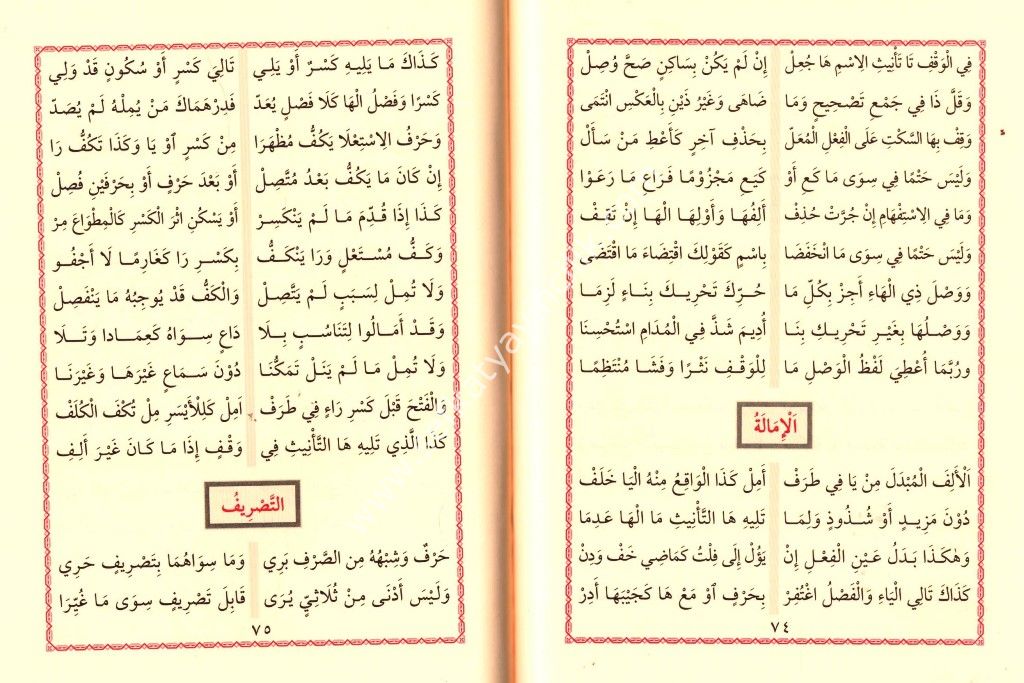 فِي الْوَقْفِ تَا تَأْنِيثِ الِاسْمِ هَا جُعِلْ إِنْ لَمْ يَكُنْ بِسَاكِنٍ صَحَّ وُصِلْ
وَقَلَّ ذَا فِي جَمْعِ تَصْحِيحٍ وَمَا ضَاهَى وَغَيْرُ ذَيْنِ بِالْعَكْسِ انْتَمَى
وَقِفْ بِهَا السَّكْتِ عَلَى الْفِعْلِ الْمُعَلّْ بِحَذْفِ آخِرٍ كَأَعْطِ مَنْ سَأَلْ
وَلَيْسَ حَتْمًا فِي سِوَى مَا كَعِ أَوْ كَيَعِ مَجْزُومًا فَرَاعِ مَا رَعَوْا
وَمَا فِي الِاسْتِفْهَامِ إِنْ جُرَّتْ حُذِفْ أَلِفُهَا وَأَوْلِهَا الْهَا إِنْ تَقِفْ
وَلَيْسَ حَتْمًا فِي سِوَى مَا انْخَفَضَا بِاسْمٍ كَقَوْلِكَ اقْتِضَاءَ مَا اقْتَضَى
وَوَصْلَ ذِي الْهَاءِ أَجِزْ بِكُلِّ مَا حُرِّكَ تَحْرِيكَ بِنَاءٍ لَزِمَا
وَوَصْلُهَا بِغَيْرِ تَحْرِيكِ بِنَا أُدِيمَ شَذَّ فِي الْمُدَامِ اسْتُحْسِنَا
وَرُبَّمَا أُعْطِيَ لَفْظُ الْوَصْلِ مَا لِلْوَقْفِ نَثْرًا وَفَشَا مُنْتَظِمًا
اَلْإِمَالَةُ
اَلْأَلِفَ الْمُبْدَلَ مِنْ يَا فِي طَرَفْ أَمِلْ كَذَا الْوَاقِعُ مِنْهُ الْيَا خَلَفْ
دُونَ مَزِيدٍ أَوْ شُذُوذٍ وَلِمَا تَلِيهِ هَا التَّأْنِيثِ مَا الْهَا عَدِمَا
وَهٰكَذَا بَدَلُ عَيْنِ الْفِعْلِ إِنْ يَؤُلْ إِلَى فِلْتُ كَمَاضِي خَفْ وَدِنْ
كَذَاكَ تَالِي الْيَاءِ وَالْفَصْلُ اغْتُفِرْ بِحَرْفٍ أَوْ مَعْ هَا كَجَيْبَهَا أَدِرْ
٧٤
كَذَاكَ مَا يَلِيهِ كَسْرٌ أَوْ يَلِي تَالِيَ كَسْرٍ أَوْ سُكُونٍ قَدْ وَلِي
كَسْرًا وَفَصْلُ الْهَا كَلَا فَصْلٍ يُعَدّْ فَدِرْهَمَاكَ مَنْ يُمِلْهُ لَمْ يُصَدّْ
وَحَرْفُ الِاسْتِعْلَا يَكُفُّ مُظْهَرَا مِنْ كَسْرٍ أَوْ يَا وَكَذَا تَكُفُّ رَا
إِنْ كَانَ مَا يَكُفُّ بَعْدُ مُتَّصِلْ أَوْ بَعْدَ حَرْفٍ أَوْ بِحَرْفَيْنِ فُصِلْ
كَذَا إِذَا قُدِّمَ مَا لَمْ يَنْكَسِرْ أَوْ يَسْكُنِ اثْرَ الْكَسْرِ كَالْمِطْوَاعَ مِرْ
وَكَفُّ مُسْتَعْلٍ وَرَا يَنْكَفُّ بِكَسْرِ رَا كَغَارِمًا لَا أَجْفُو
وَلَا تُمِلْ لِسَبَبٍ لَمْ يَتَّصِلْ وَالْكَفُّ قَدْ يُوجِبُهُ مَا يَنْفَصِلْ
وَقَدْ أَمَالُوا لِتَنَاسُبٍ بِلَا دَاعٍ سِوَاهُ كَعِمَادَا وَتَلَا
وَلَا تُمِلْ مَا لَمْ يَنَلْ تَمَكُّنَا دُوْنَ سَمَاعٍ غَيْرَهَا وَغَيْرَنَا
وَالْفَتْحَ قَبْلَ كَسْرِ رَاءٍ فِي طَرَفْ اَمِلْ كَلِلْأَيْسَرِ مِلْ تُكْفَ الْكُلَفْ
كَذَا الَّذِي تَلِيهِ هَا التَّأْنِيثِ فِي وَقْفٍ إِذَا مَا كَانَ غَيْرَ أَلِفِ
التَّصْرِيفُ
حَرْفٌ وَشِبْهُهُ مِنَ الصَّرْفِ بَرِي وَمَا سِوَاهُمَا بِتَصْرِيفٍ حَرِي
وَلَيْسَ أَدْنَى مِنْ ثُلَاثِيٍّ يُرَى قَابِلَ تَصْرِيفٍ سِوَى مَا غُيِّرَا
٧٥